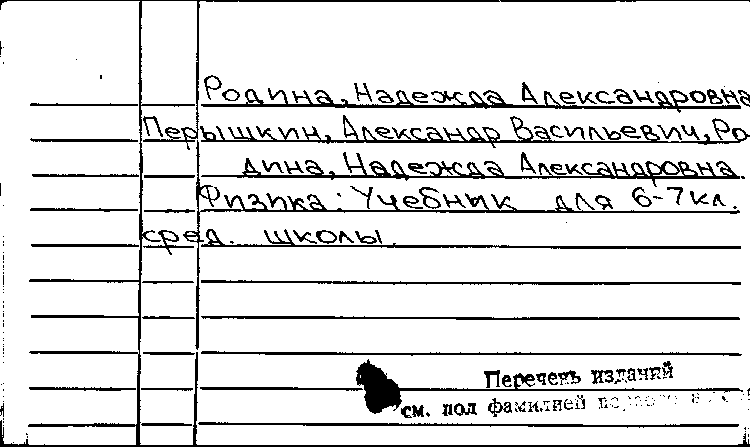 Родина, Надежда Александровна
Перышкин, Александр Васильевич, Ро
дина, Надежда Александровна
Физика: Учебник для 6-7 кл.
сред. школы.
Перечень изданий
см. под фамилией первого